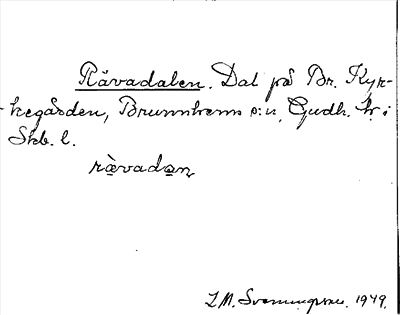 Rävadalen. Dal på Br. Kyr-
kegården, Brunnhems s:n, Gudh. hr i
Skb. l.
rävadan
Z.M. Svenungsson. 1949.